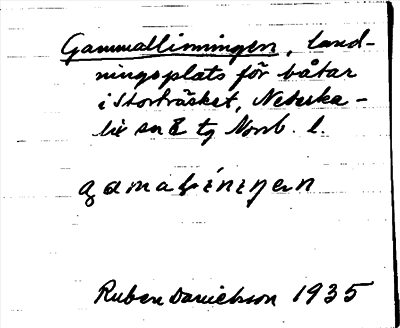 Gammallinningen, land-
ningsplats för båtar
i Storträsket, Nederka-
lix sn Ö tg Norrb. l.
Ruben Danielsson 1935